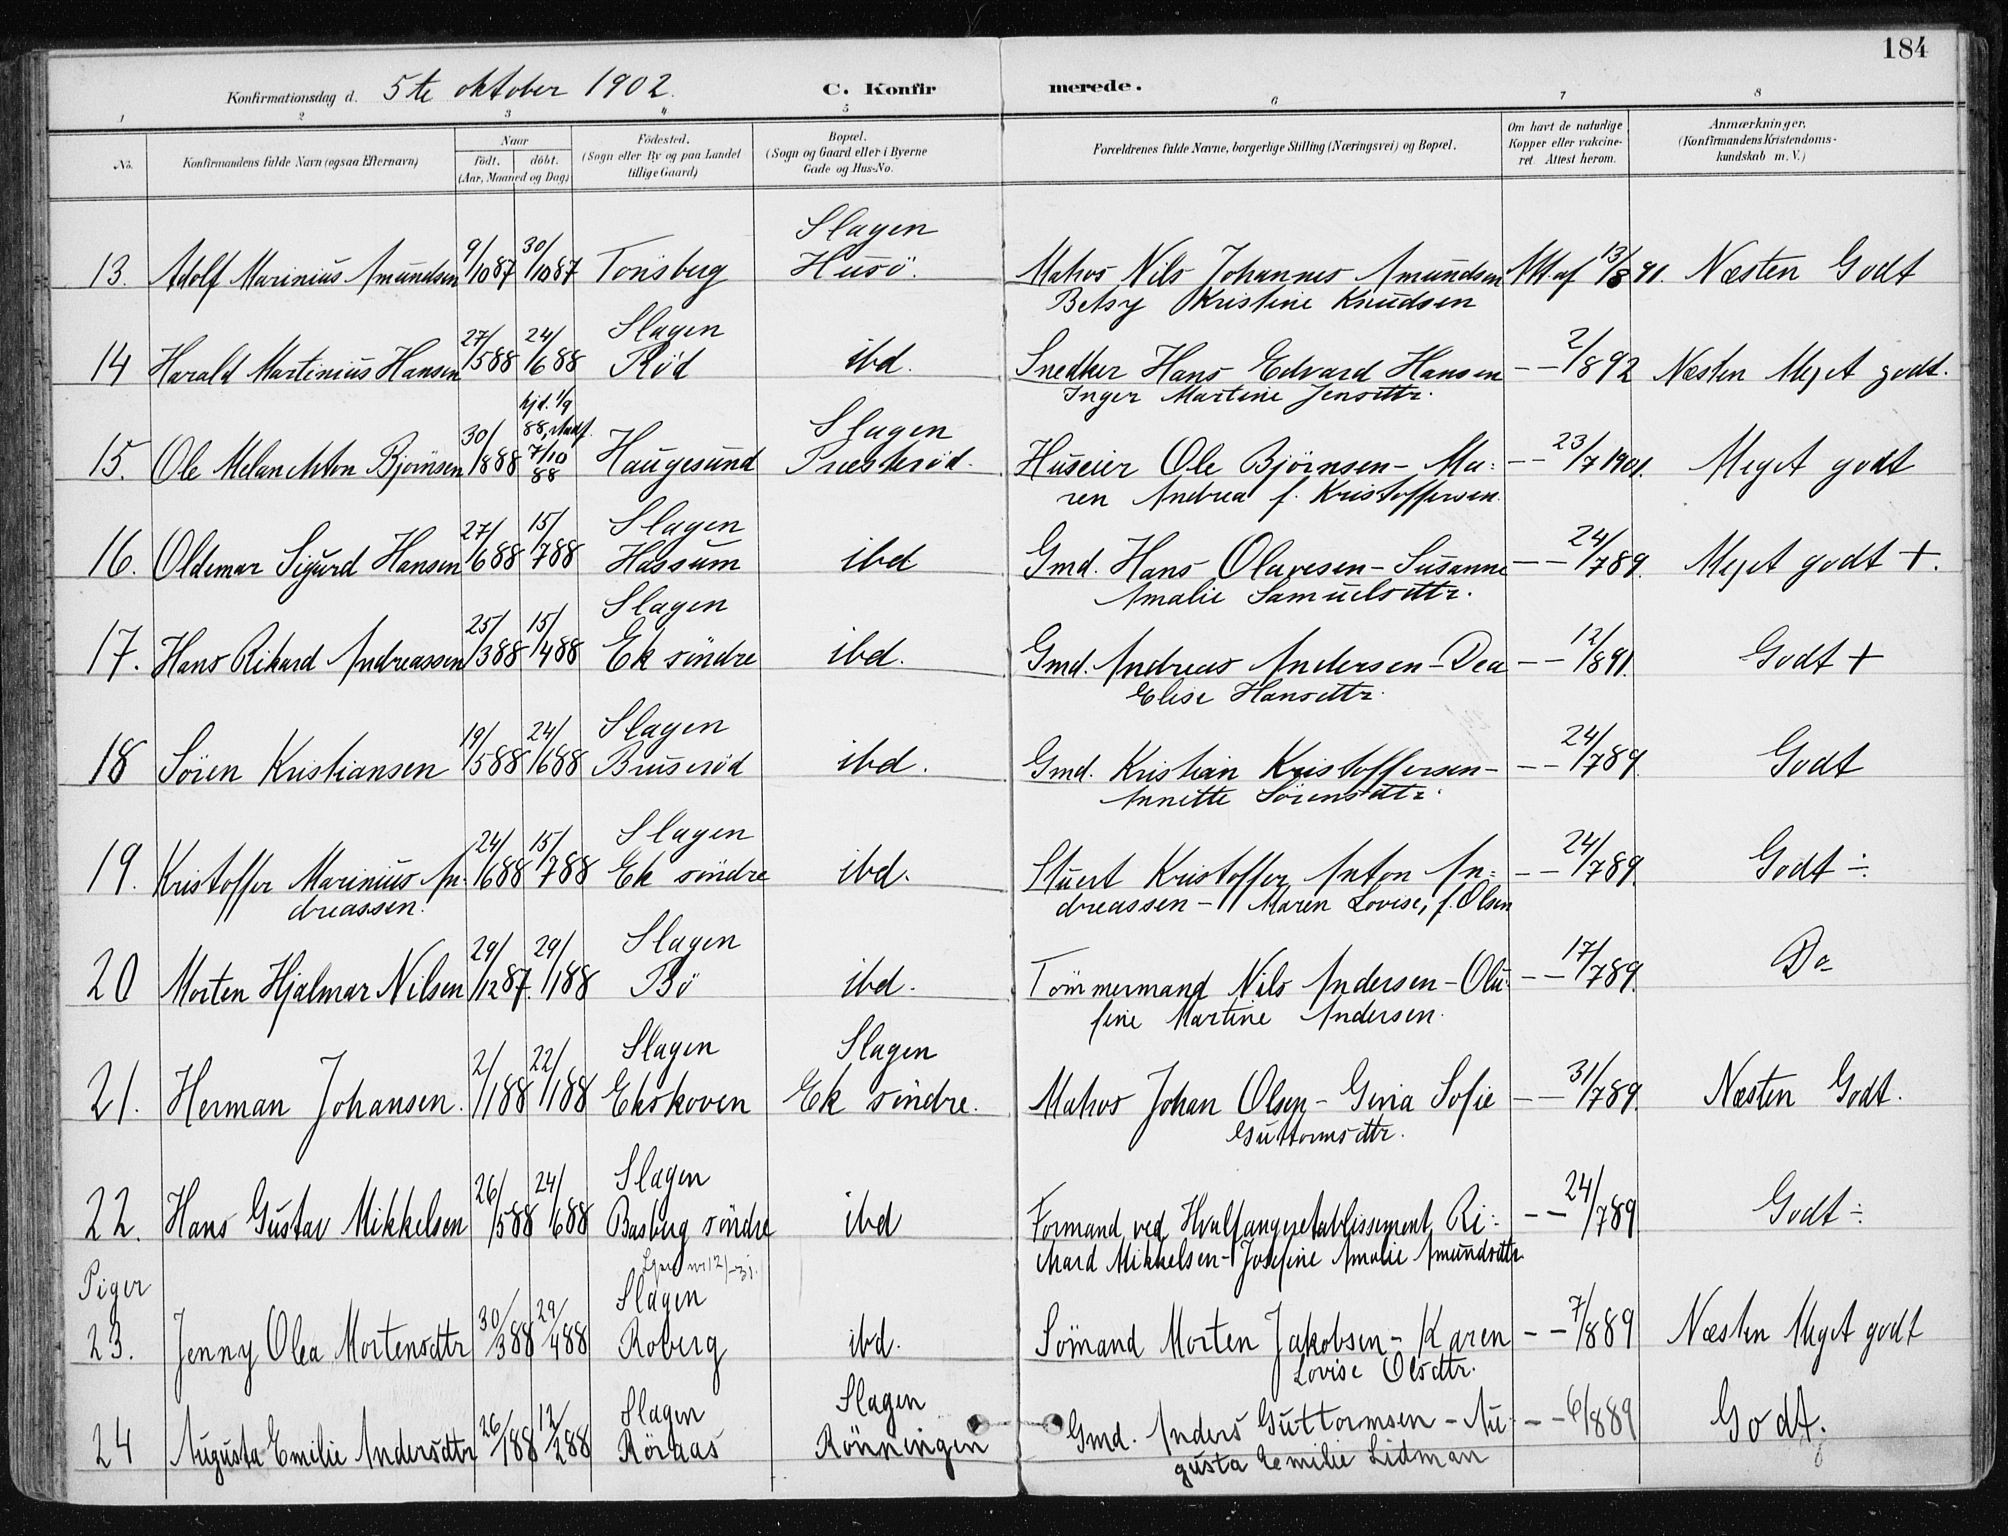 184
Konfirmationsdag d. 5te oktober 1902. C. Konfirmerede.
1 2 3 4 5 6 7 8
No. Konfirmandens fulde Navn (ogsaa Efternavn) Naar født. døbt. (Aar, Maaned og Dag) Fødested. (Sogn eller By og paa Landet tillige Gaard) Bopæl. (Sogn og Gaard eller i Byerne Gade og Hus-No. Forældrenes fulde Navne, borgerlige Stilling (Næringsvei) og Bopæl. Om havt de naturlige Kopper eller vakcineret. Attest herom. Anmærkninger. (Konfirmandens Kristendomskundskab m. V.)
Slagen
13. Adolf Marinius Amundsen 9/10 87 30/10 87 Tønsberg Husö. Matros Nils Johannes Amundsen Att. af 13/8 91. Næsten Godt
Betsy Kristine Knudsen
Slagen
14 Harald Martinius Hansen 27/5 88 24/6 88 Rød ibd. Snedker Hans Edvard Hansen - - 2/8 92 Næsten Meget godt.
Inger Martine Jensdttr.
hjd. 1/9 88, stadf. Slagen
15. Ole Melanchton Bjørnsen 30/8 88 7/10 88 Haugesund Presterød. Huseier Ole Bjørnsen - Ma- - - 23/7 1901. Meget godt
ren Andrea f. Kristoffersen.
Slagen
16. Oldemar Sigurd Hansen 27/6 88 15/7 88 Hassum ibd Gmd. Hans Olavesen - Susanne - - 24/7 89. Meget godt +.
Amalie Samuelsdttr.
Slagen
17. Hans Rikard Andreassen 25/3 88 15/4 88 Ek söndre ibd. Gmd. Andreas Andersen - Dea - - 12/8 91. Godt +
Elise Hansdttr.
Slagen
18 Søren Kristiansen 19/5 88 24/6 88 Bruserød ibd. Gmd. Kristian Kristoffersen - - - 24/7 89. Godt
Annette Sørensdttr.
Slagen
19. Kristoffer Marinius An- 24/6 88 15/7 88 Ek söndre ibd. Stuert Kristoffer Anton An- - - 24/7 89. Godt ÷
dreassen. dreassen - Maren Lovise, f. Olsen
Slagen
20 Morten Hjalmar Nilsen 29/12 87. 29/1 88 Bö ibd. Tømmermand Nils Andersen - Olu- - - 17/7 89. Do
fine Martine Andersen.
Slagen Slagen
21. Herman Johansen. 2/1 88 22/1 88 Ekskoven Ek söndre. Matros Johan Olsen - Gina Sofie - - 31/7 89. Næsten Godt.
Guttormsdtr.
Slagen
22. Hans Gustav Mikkelsen 26/5 88 24/6 88 Basberg söndre ibd Formand ved Hvalfangeretablissement Ri- - - 24/7 89. Godt ÷
chard Mikkelsen - Josefine Amalie Amundsdtr
Piger
Slagen
23. Jenny Olea Mortensdtr 30/3 88 29/4 88 Roberg ibd. Sömand Morten Jakobsen - Karen - - 7/8 89 Næsten Meget godt
Lovise Olsdtr.
Slagen Slagen
24 Augusta Emilie Andersdtr 26/1 88 12/2 88 Röraas Rönningen Gmd. Anders Guttormsen - Au- - - 6/8 89 Godt.
gusta Emilie Lidman